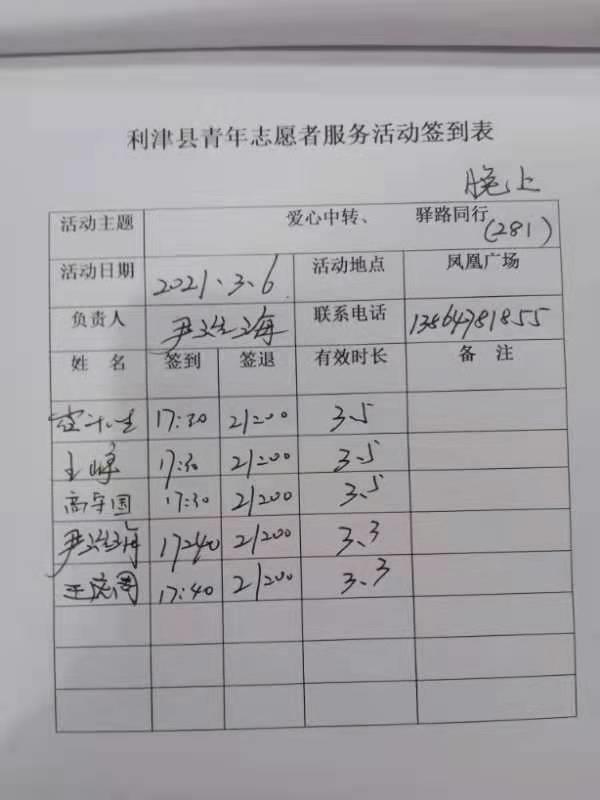 利津县青年志愿者服务活动签到表
晚上
活动主题 爱心中转、 驿路同行 (281)
活动日期 2021.3.6 活动地点 凤凰广场
负责人 尹海 联系电话 13864781855
姓 名 签到 签退 有效时长 备 注
17:30 21:00 3.5
王峰 17:30 21:00 3.5
高守国 17:30 21:00 3.5
尹海 17:40 21:00 3.3
王 17:40 21:00 3.3